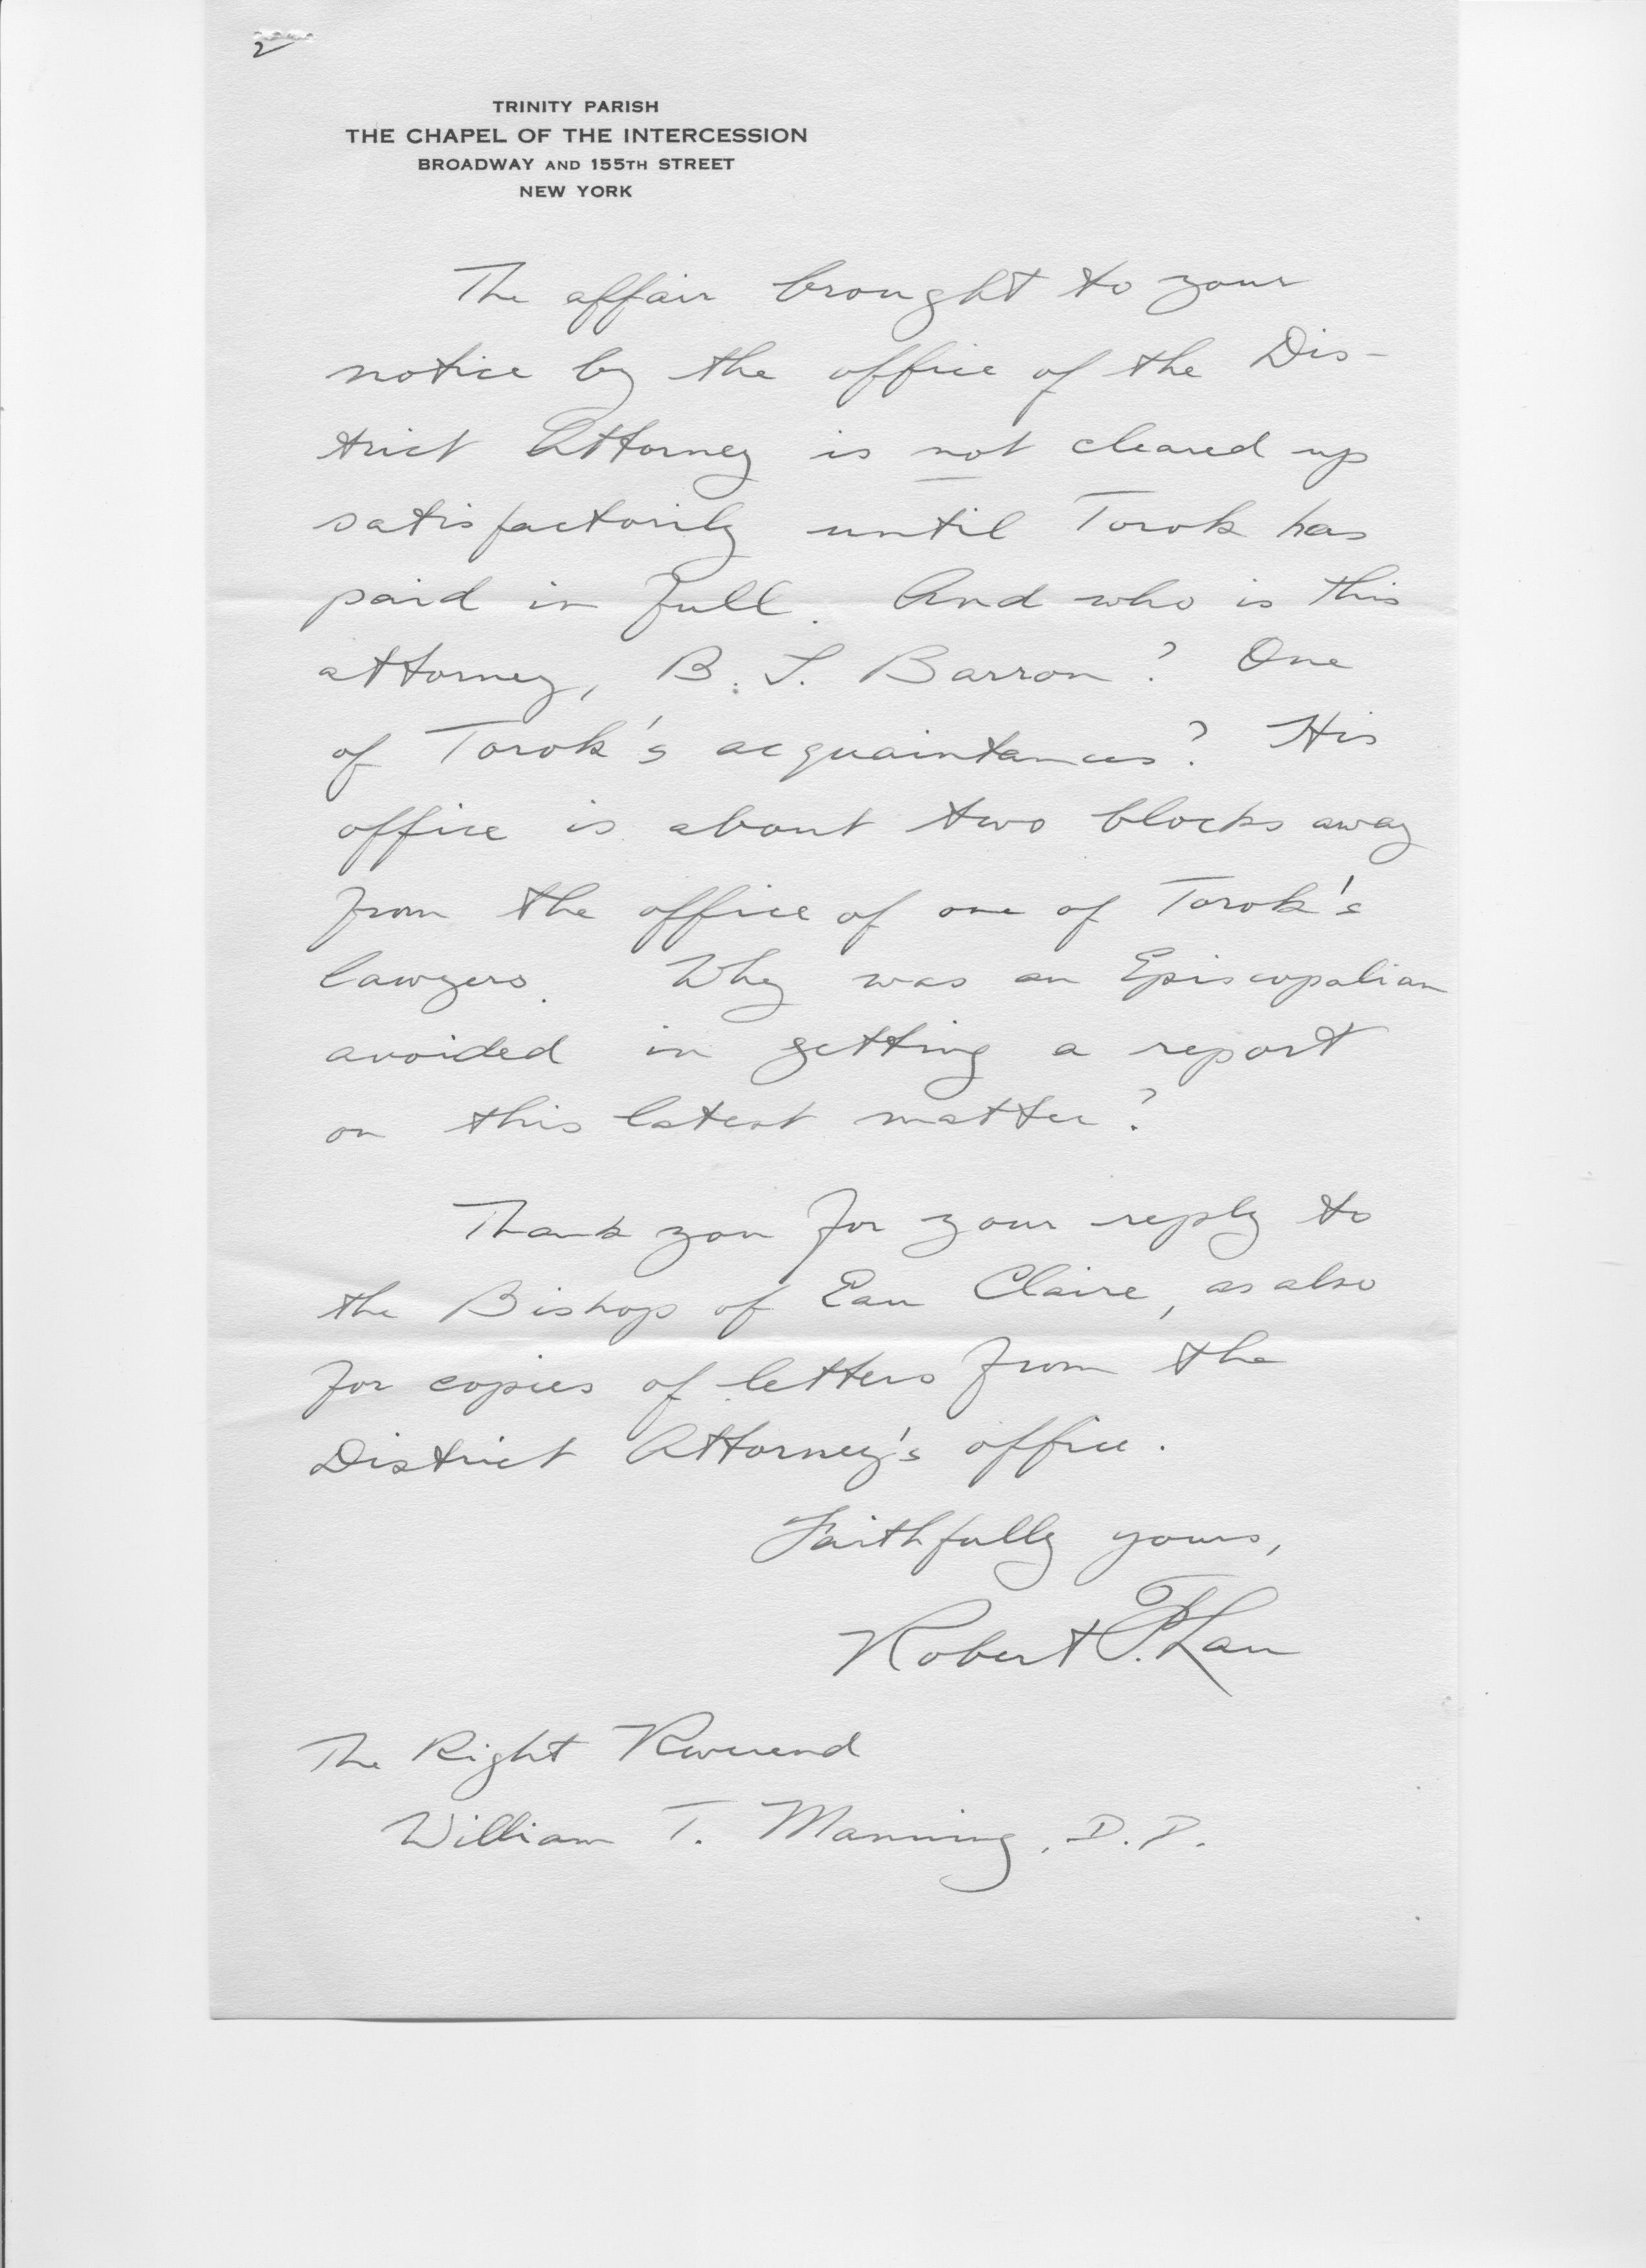 2
TRINITY PARISH
THE CHAPEL OF THE INTERCESSION
BROADWAY AND 155TH STREET
NEW YORK
The affair brought to your
notice by the office of the Dis-
trict Attorney is not cleared up
satisfactorily until Torok has
paid in full. And who is this
attorney, B. S. Barron? One
of Torok's acquaintances? His
office is about two blocks away
from the office of one of Torok's
lawyers. Why was an Episcopalian
avoided in getting a report
on this latest matter?
Thank you for your reply to
the Bishop of Eau Claire, as also
for copies of letters from the
District Attorney's office.
Faithfully yours,
Robert
The Right Reverend
William T. Manning, D.D.